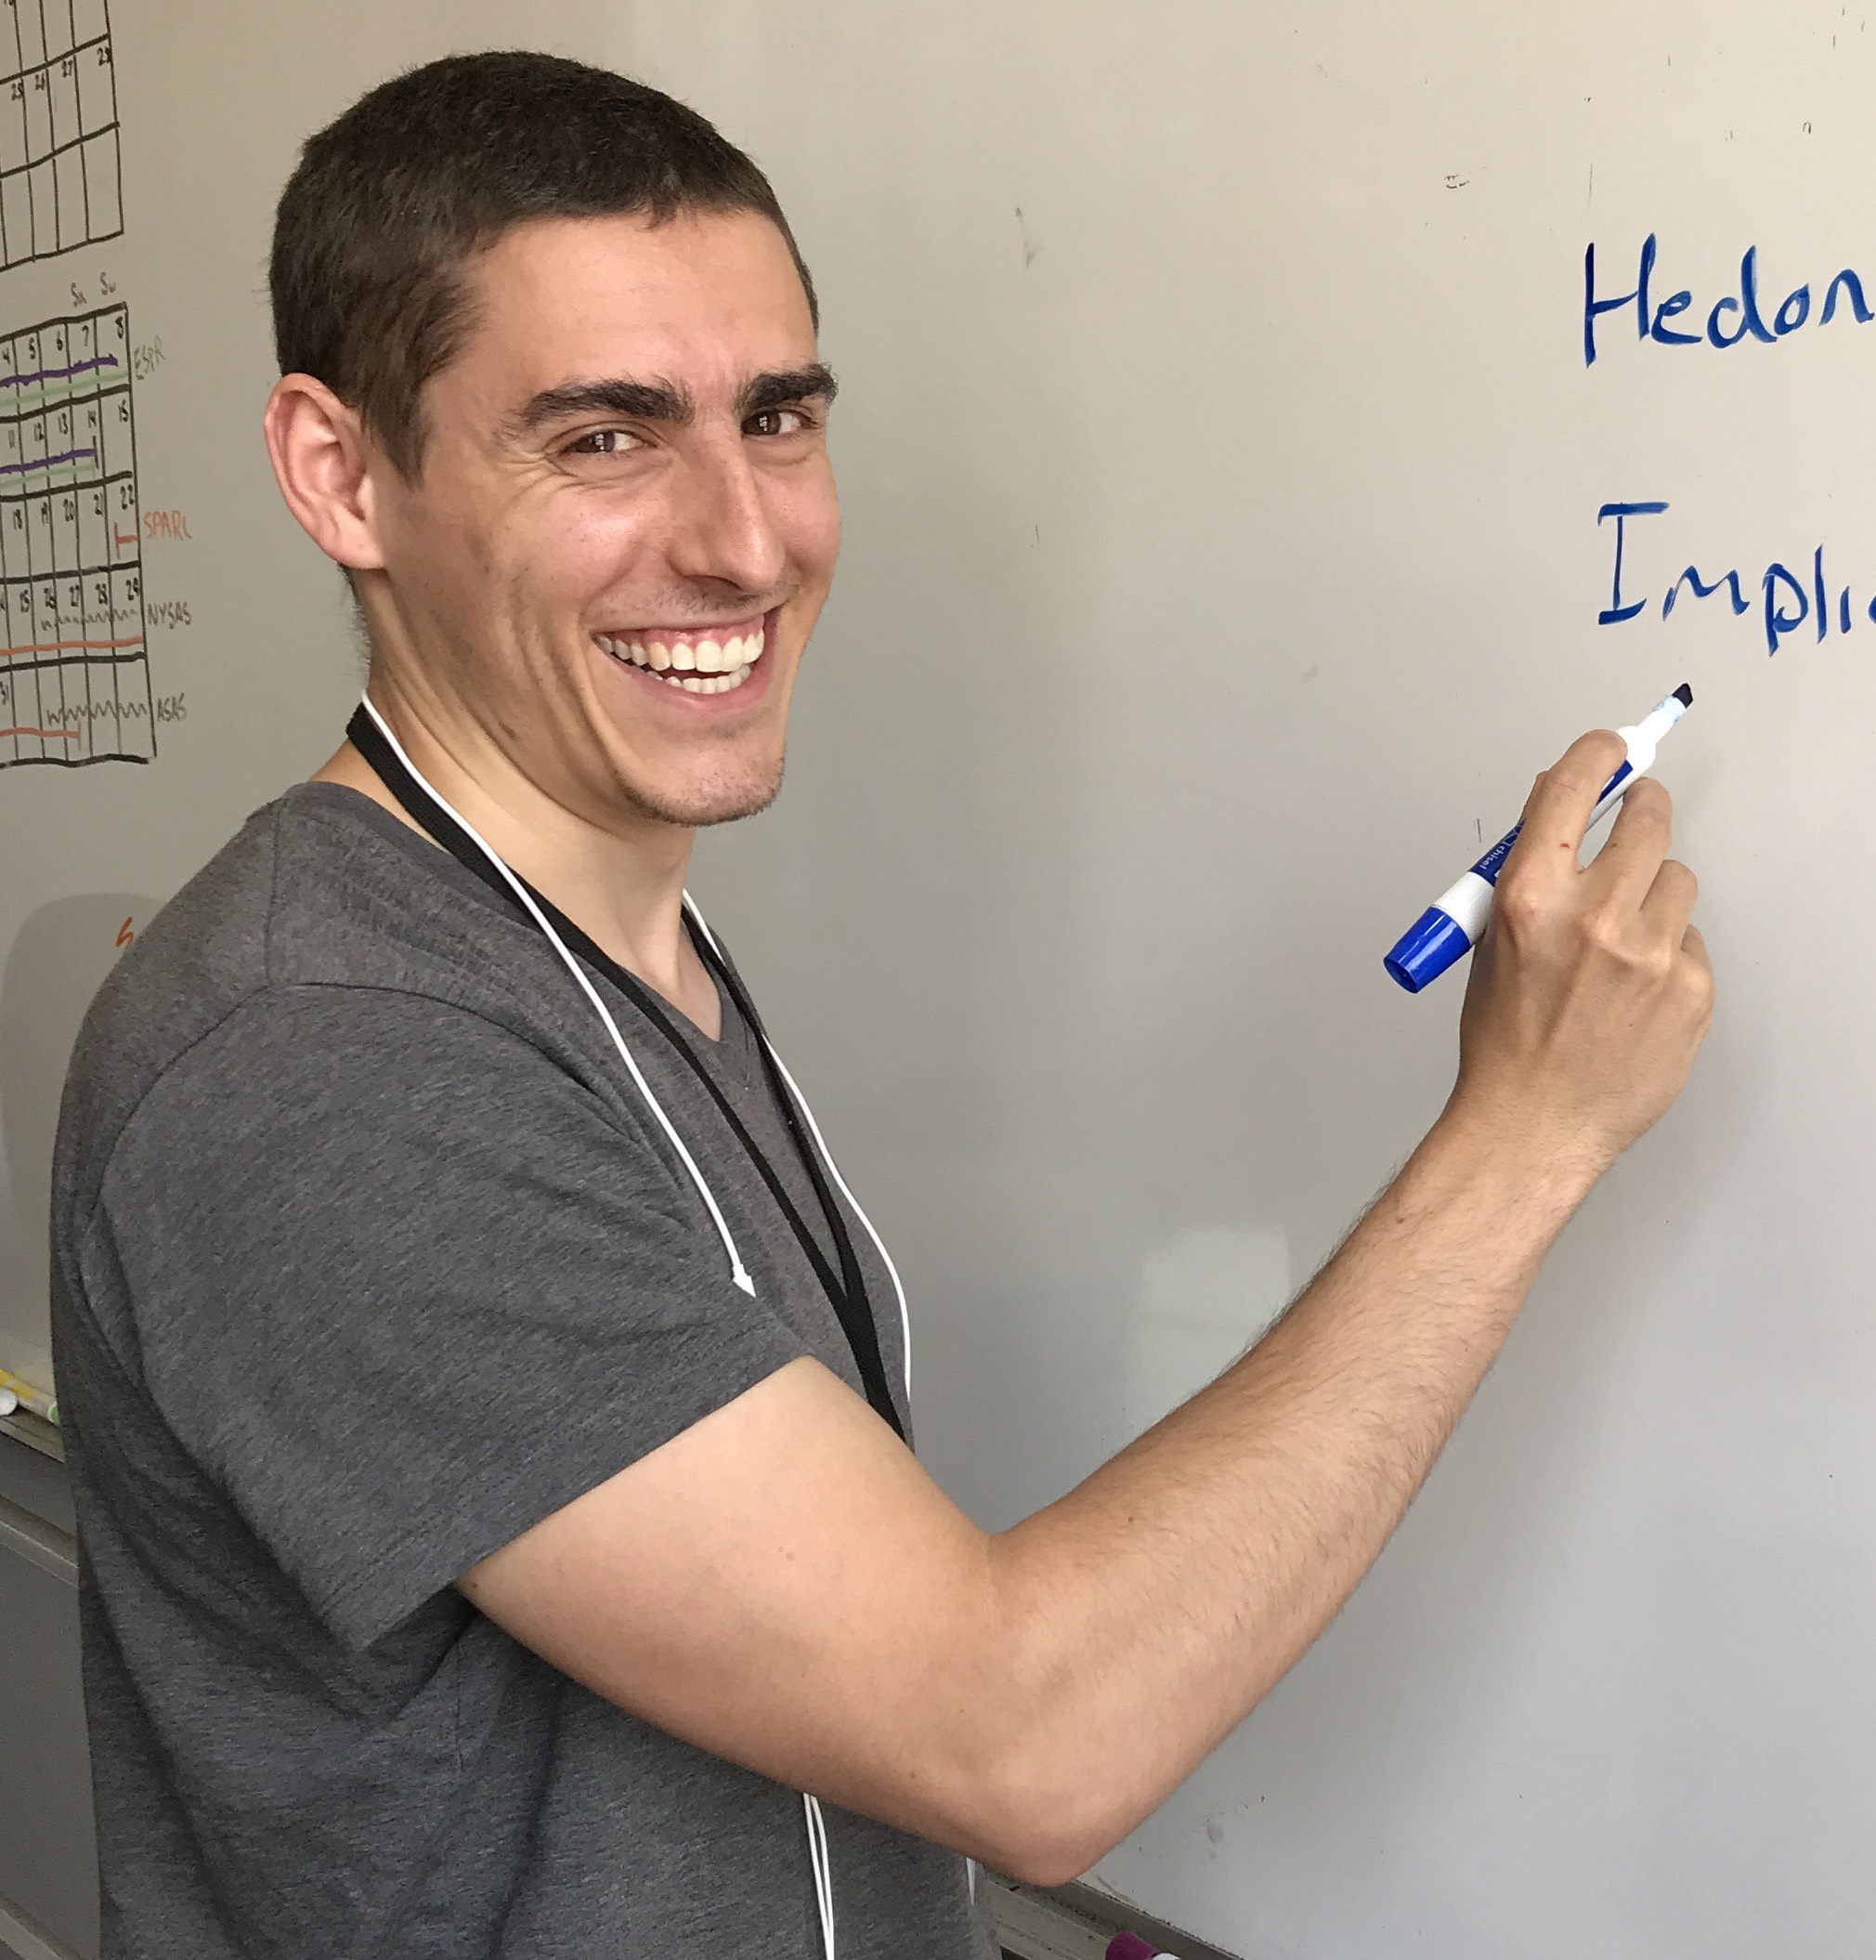 25 26 27 29
Sa Su
4 5 6 7 8 ESPR
11 12 13 14 15
18 19 20 21 22 SPARC
25 26 27 28 29 NYSAS
31 ASAS
Hedon
Implic
chisel